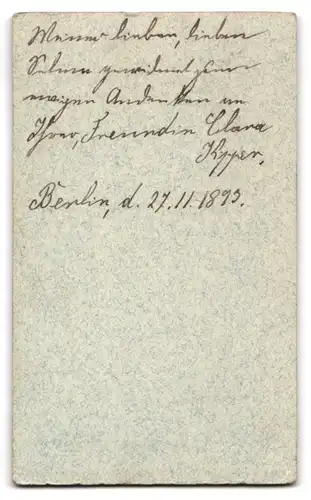 Meiner lieben, lieben
Selma gewidmet zum
ewigen Andenken an
Ihrer, Freundin Clara
Kyper.
Berlin, d. 27.11.1893.